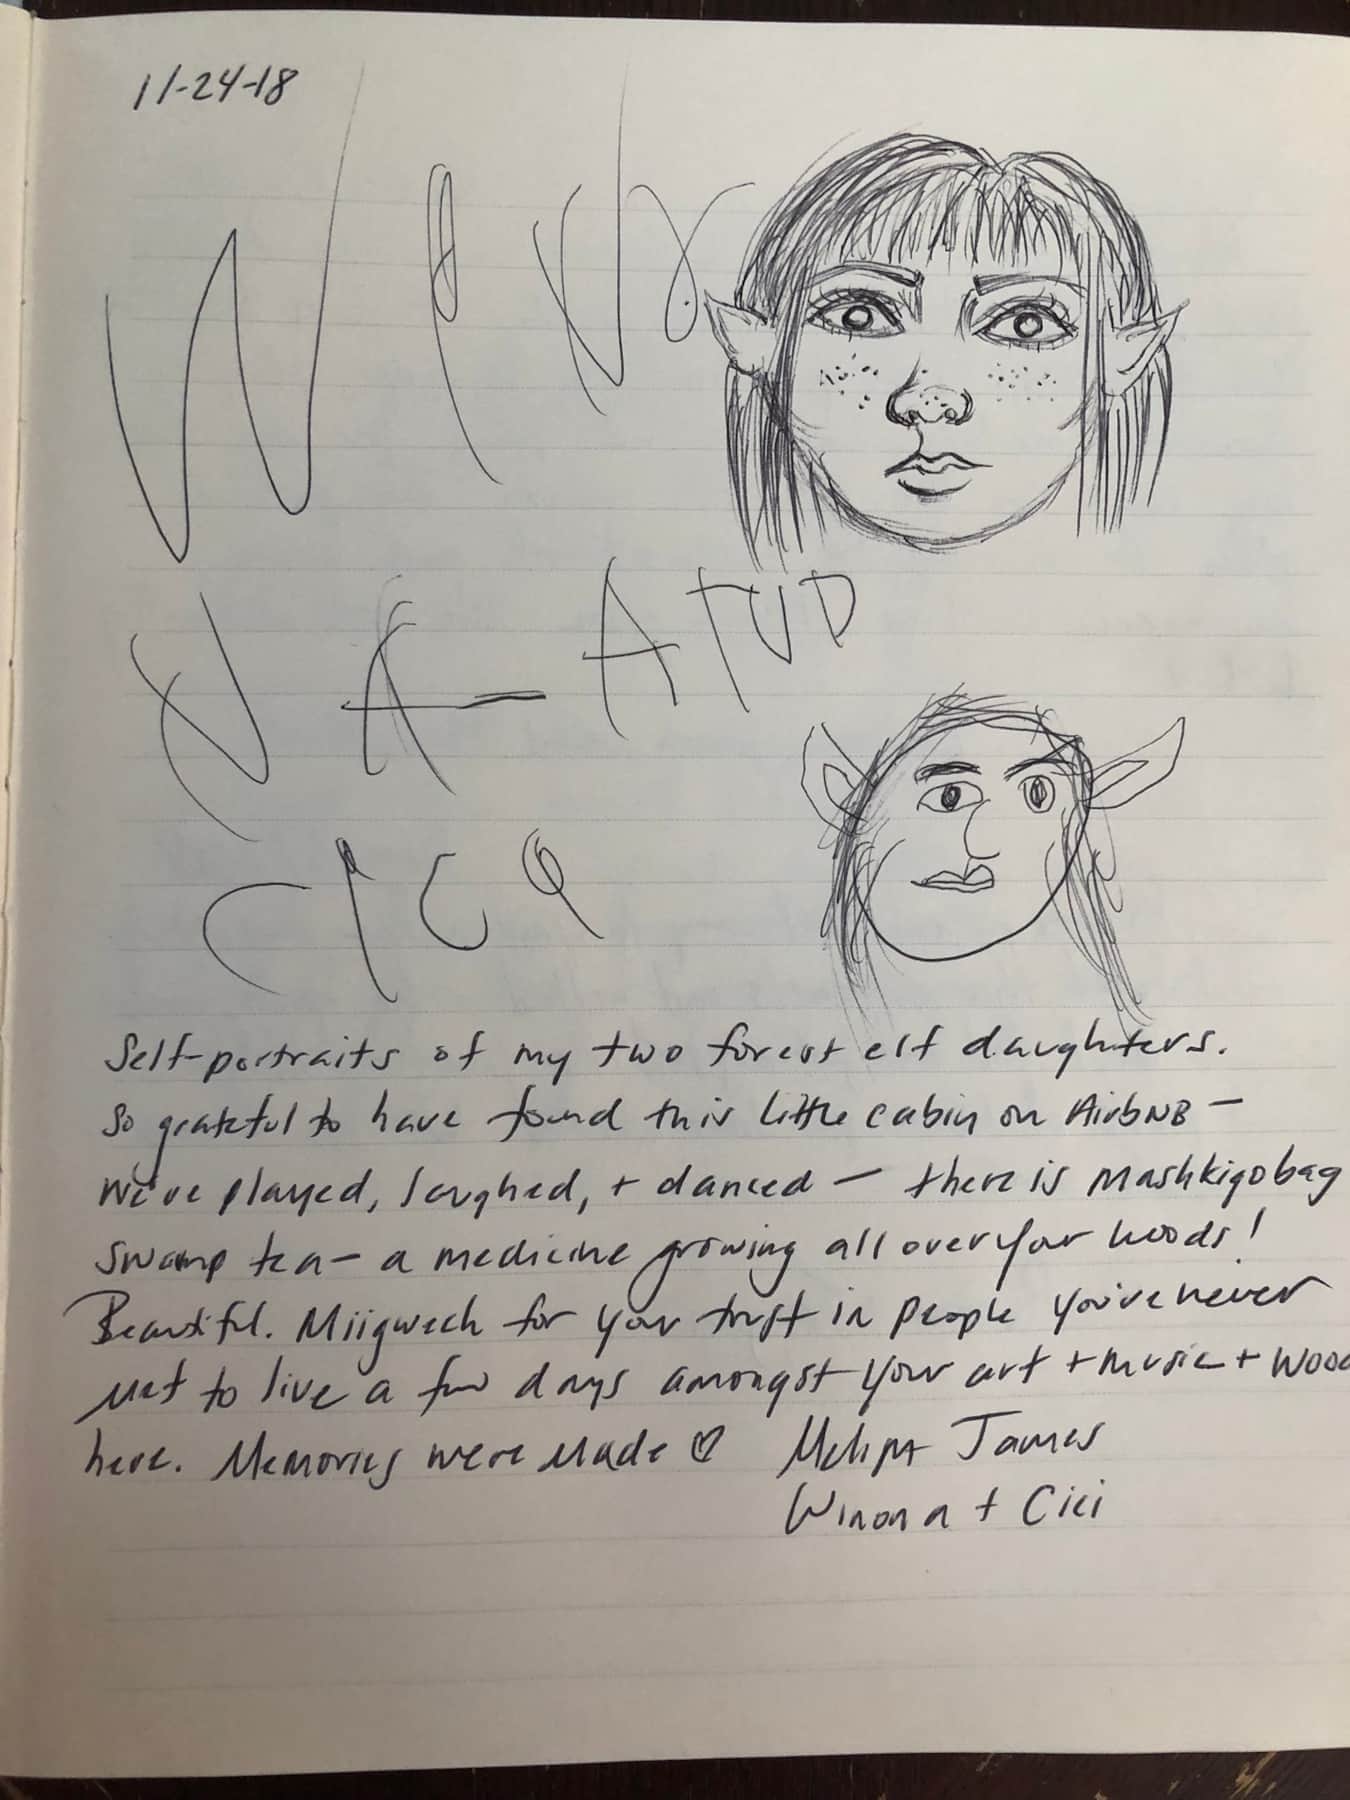 11-24-18
WiNo
NA-AND
CiCi
Self-portraits of my two forest elf daughters.
So grateful to have found this little cabin on AirbNB —
We've played, laughed, + danced — there is Mashkigobag
Swamp tea — a medicine growing all over your woods!
Beautiful. Miigwech for your trust in people you've never
met to live a few days amongst your art + music + wood
here. Memories were made ♡ James
Winona + Cici